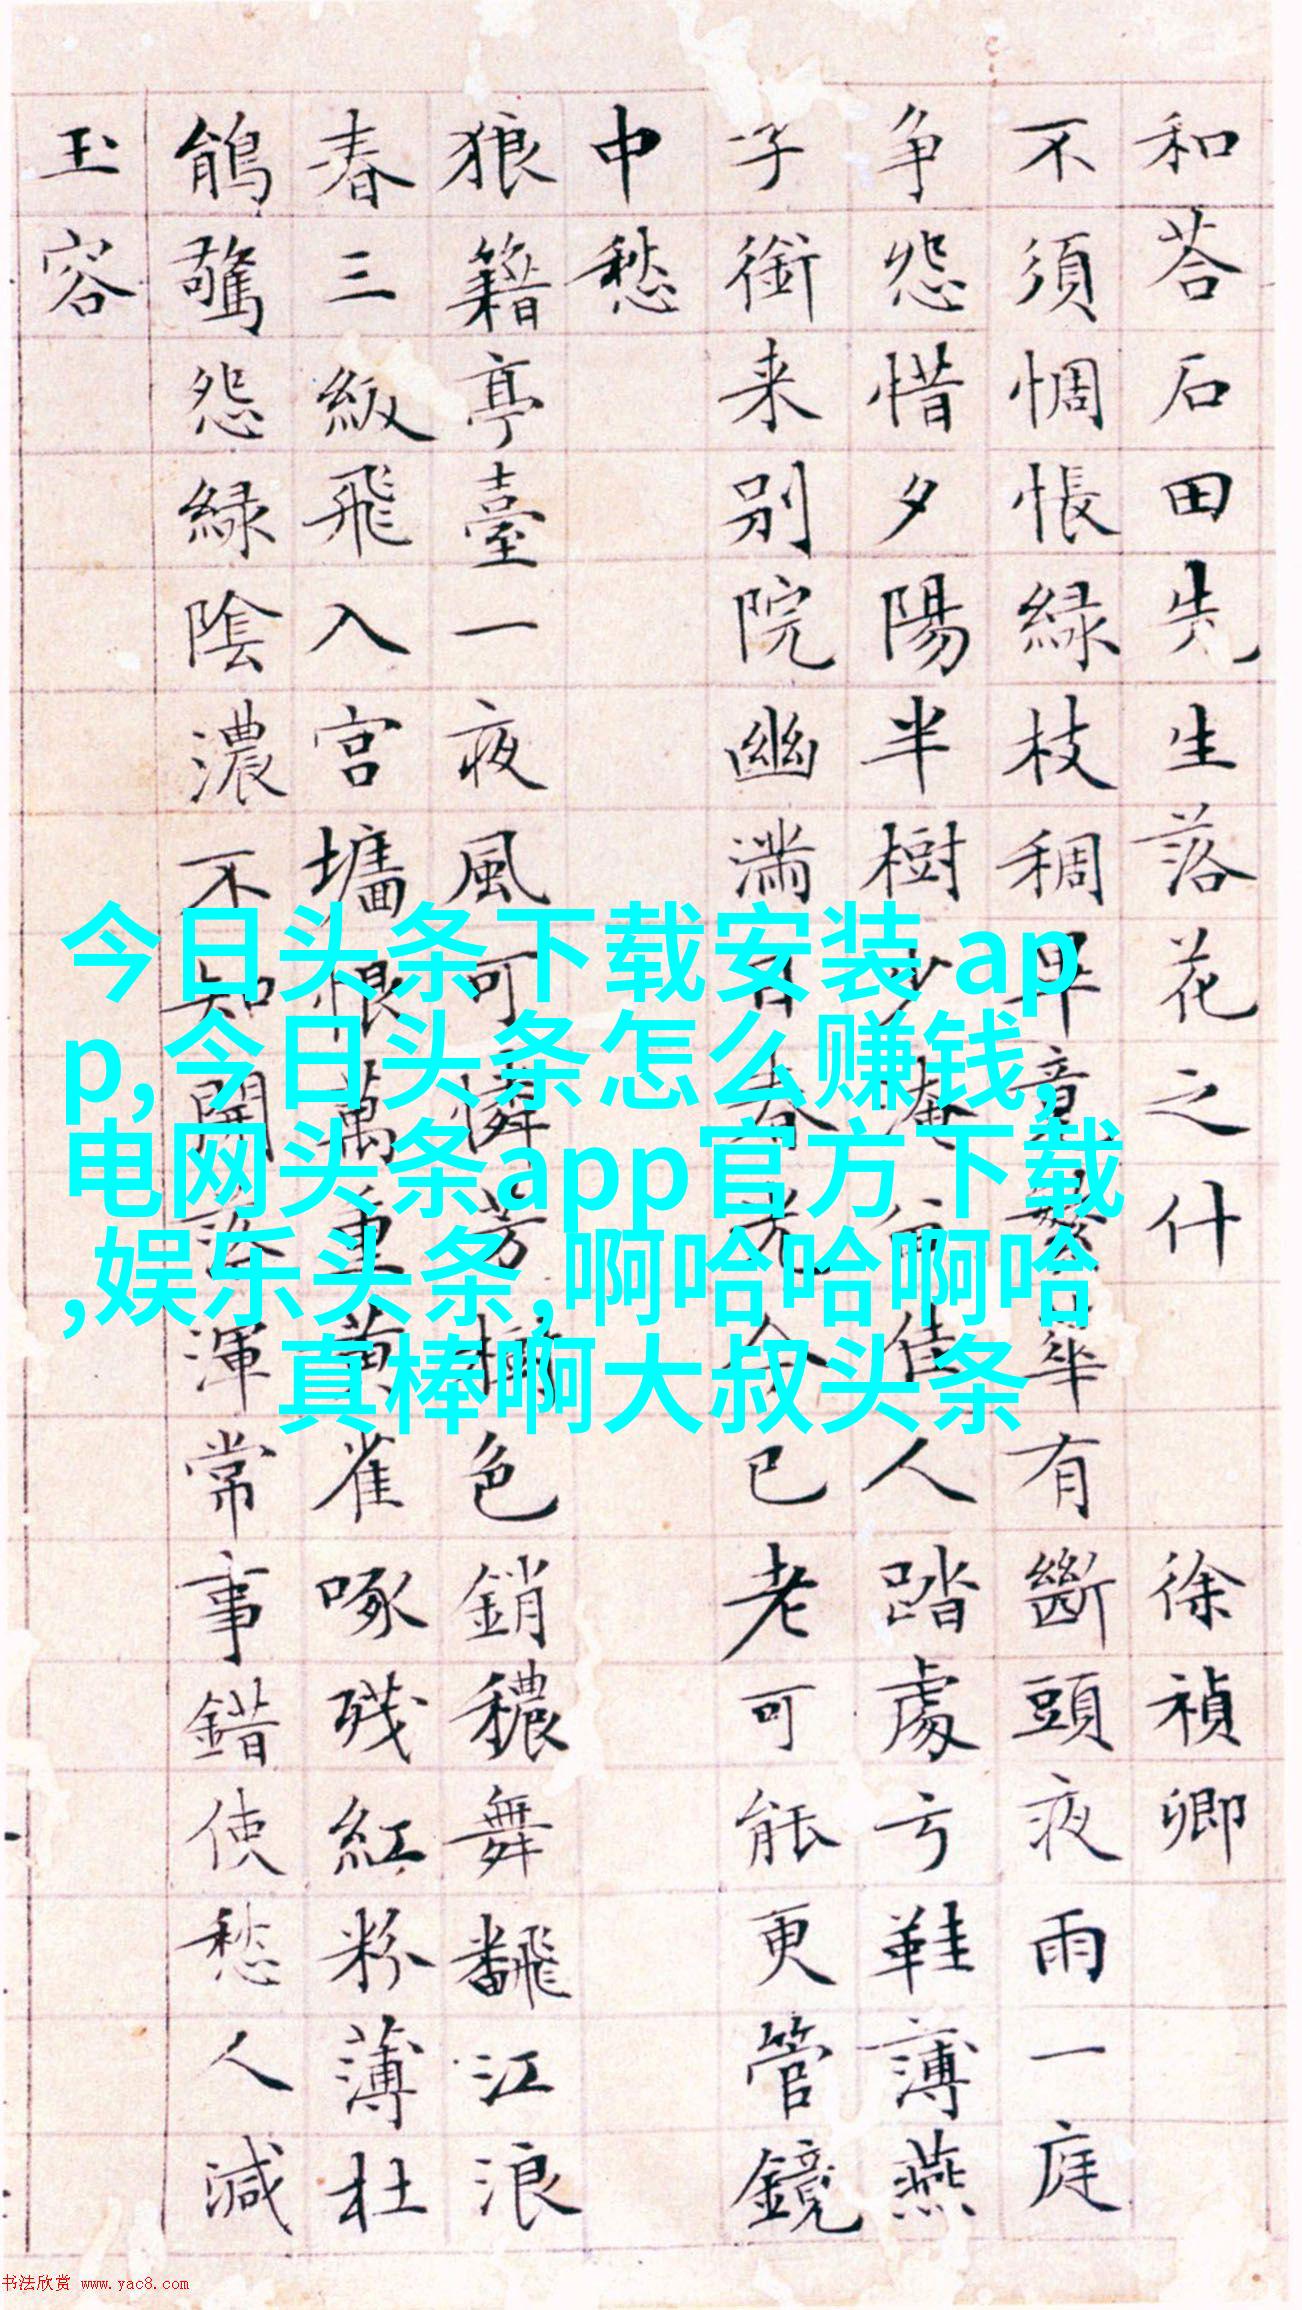 和荅石田先生落花之什 徐禎卿
不須惆悵緑枝稠畢竟繁華有斷頭夜雨一庭
争怨惜夕陽半樹少淹留佳人踏處弓鞋薄燕
子銜来别院幽滿目春光今已老可能更管鏡
中愁
狼籍亭臺一夜風可憐芳色銷穠舞飜江浪
春三級飛入宫墻恨萬重黄雀啄殘紅粉薄杜
鵑驚怨緑陰濃不知開落渾常事錯使愁人減
玉容
今日头条下载安装 ap
p,今日头条怎么赚钱,
电网头条app官方下载
,娱乐头条,啊哈哈啊哈
真棒啊大叔头条
书法欣赏 www.yac8.com